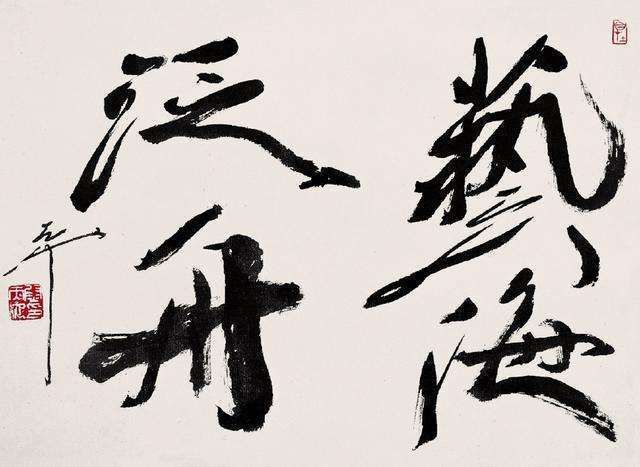 藝海
泛舟